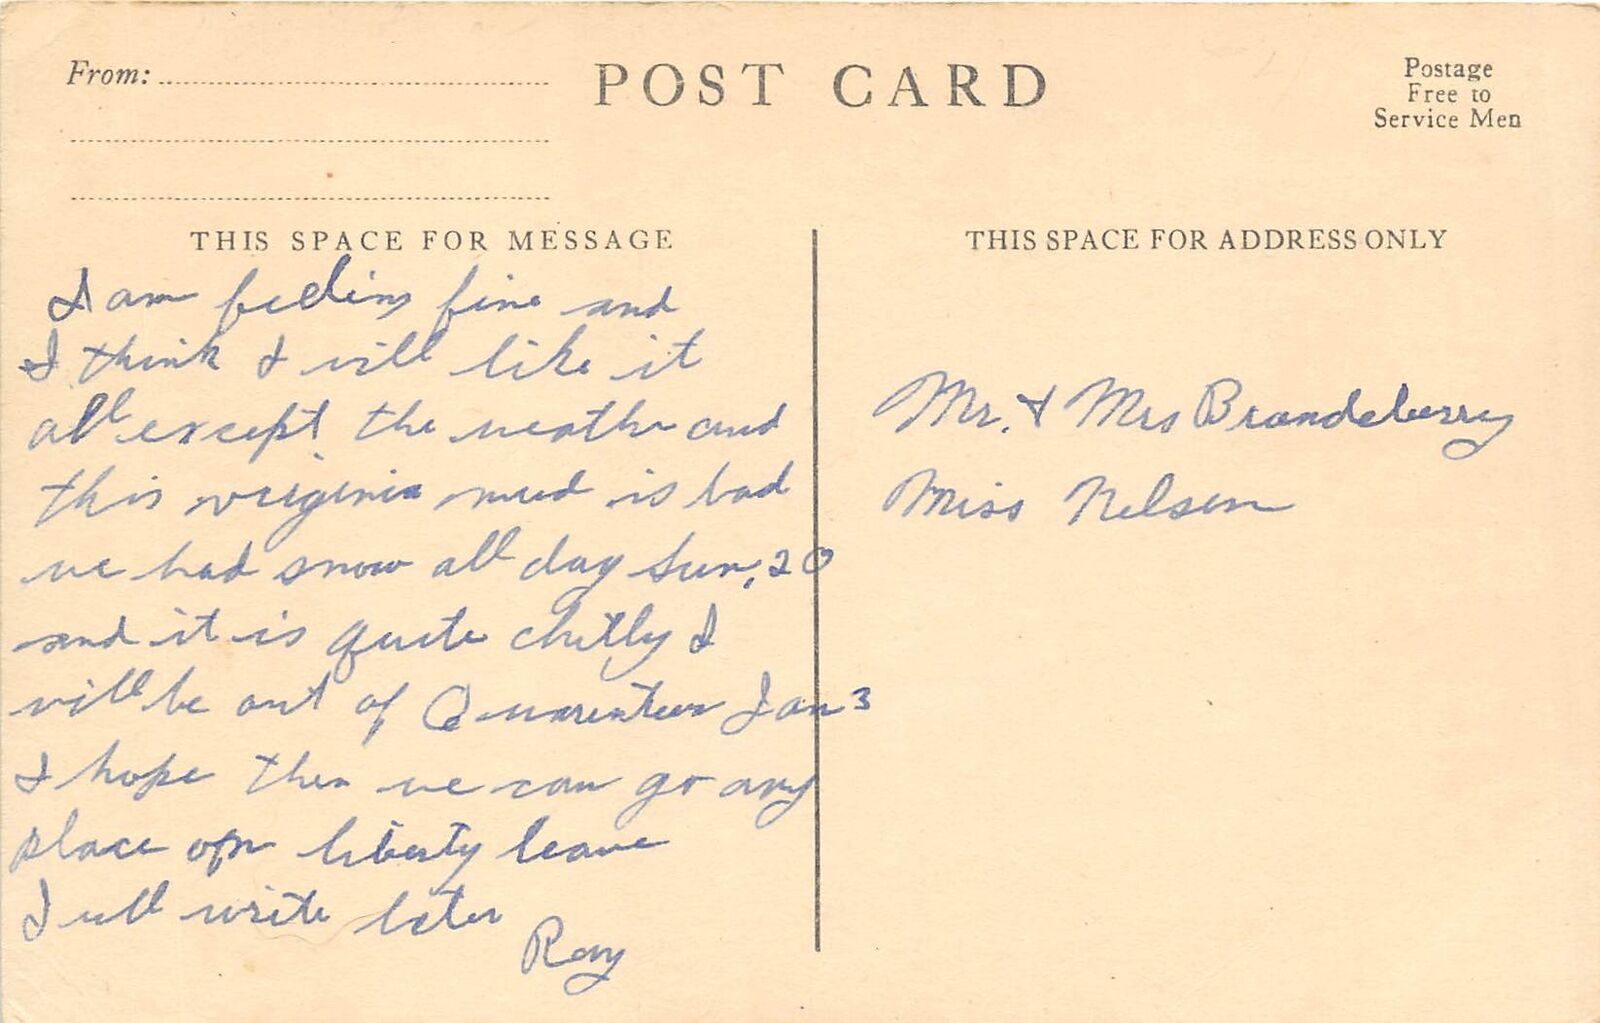 From:
POST CARD
Postage
Free to
Service Men
THIS SPACE FOR MESSAGE
I am feeling fine and
I think I will like it
all except the weather and
this virginia mud is bad
we had snow all day Sun, 20
and it is quite chilly I
will be out of Quarenteen Jan 3
I hope then we can go any
place on liberty leave
I will write later
Ray
THIS SPACE FOR ADDRESS ONLY
Mr. & Mrs Brandeberry
Miss Nelson